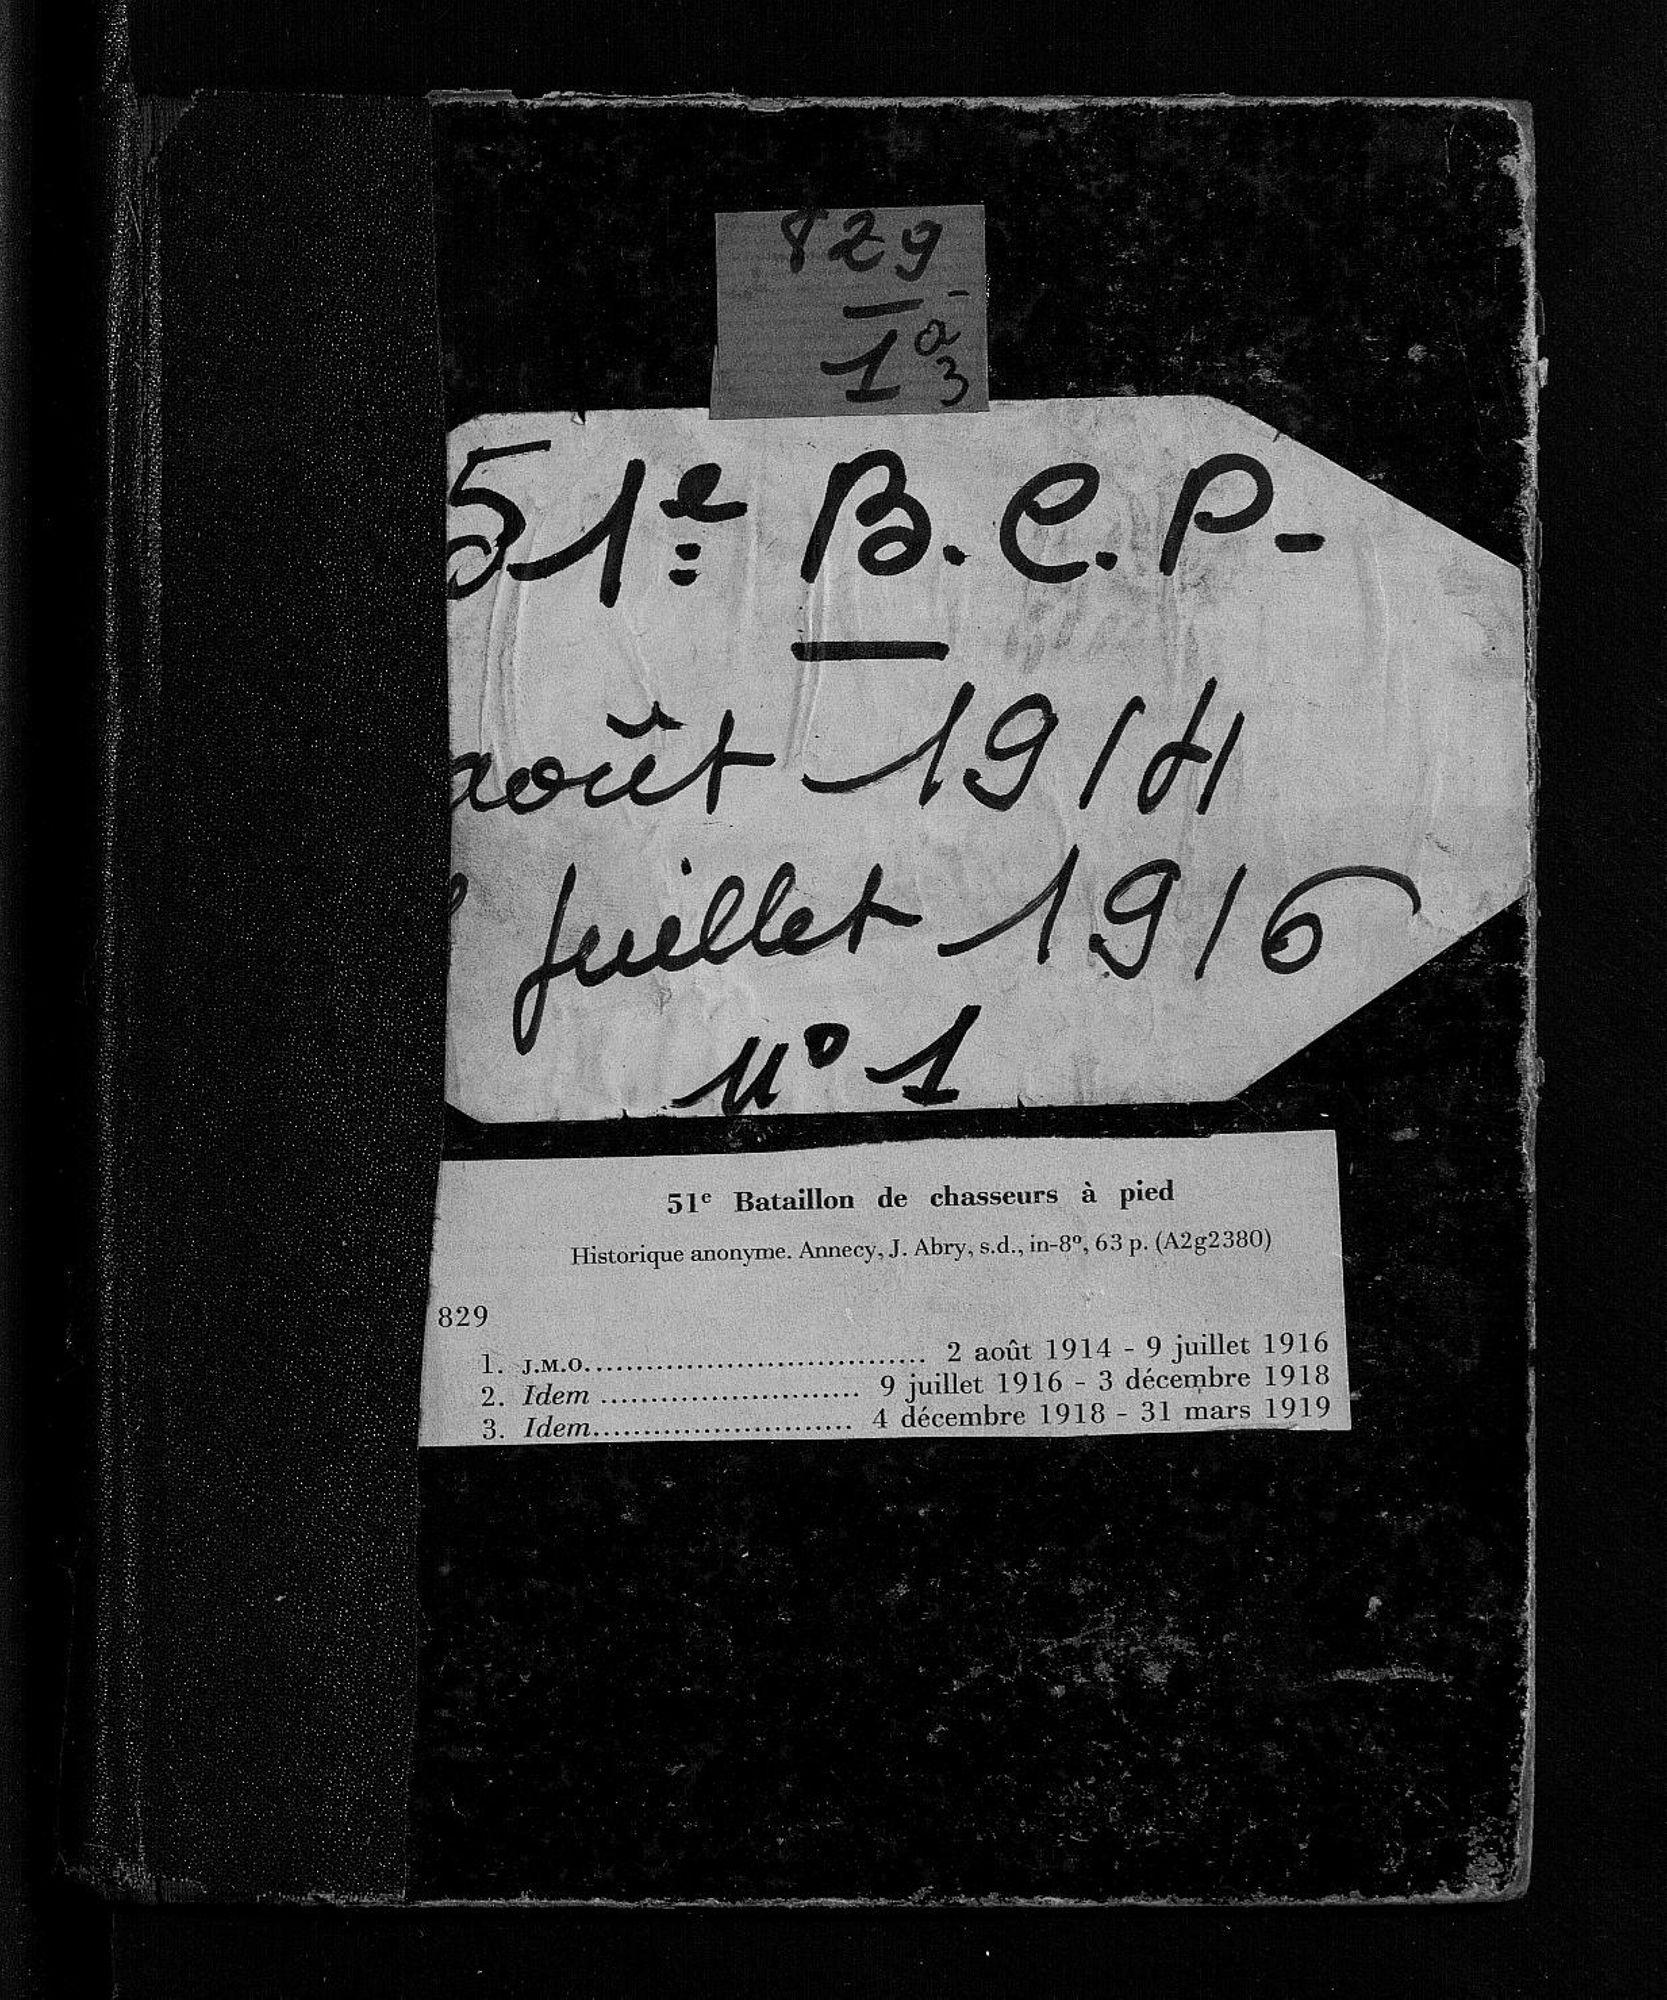 829
1 a
3
51e B.C.P.
août 1914
juillet 1916
No 1
51e Bataillon de chasseurs à pied
Historique anonyme. Annecy, J. Abry, s.d., in-8º, 63 p. (A2g2380)
829
1. J.M.O. .................................. 2 août 1914 - 9 juillet 1916
2. Idem .......................... 9 juillet 1916 - 3 décembre 1918
3. Idem .......................... 4 décembre 1918 - 31 mars 1919